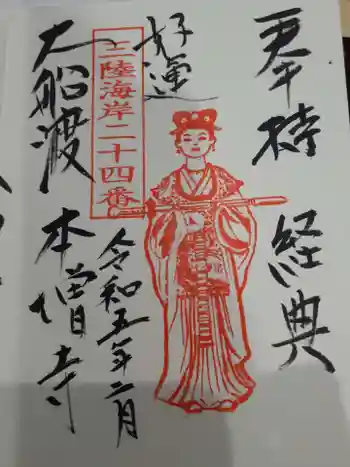 奉拝 経典
好運
三陸海岸二十四番
令和五年二月
大船渡 本僧寺